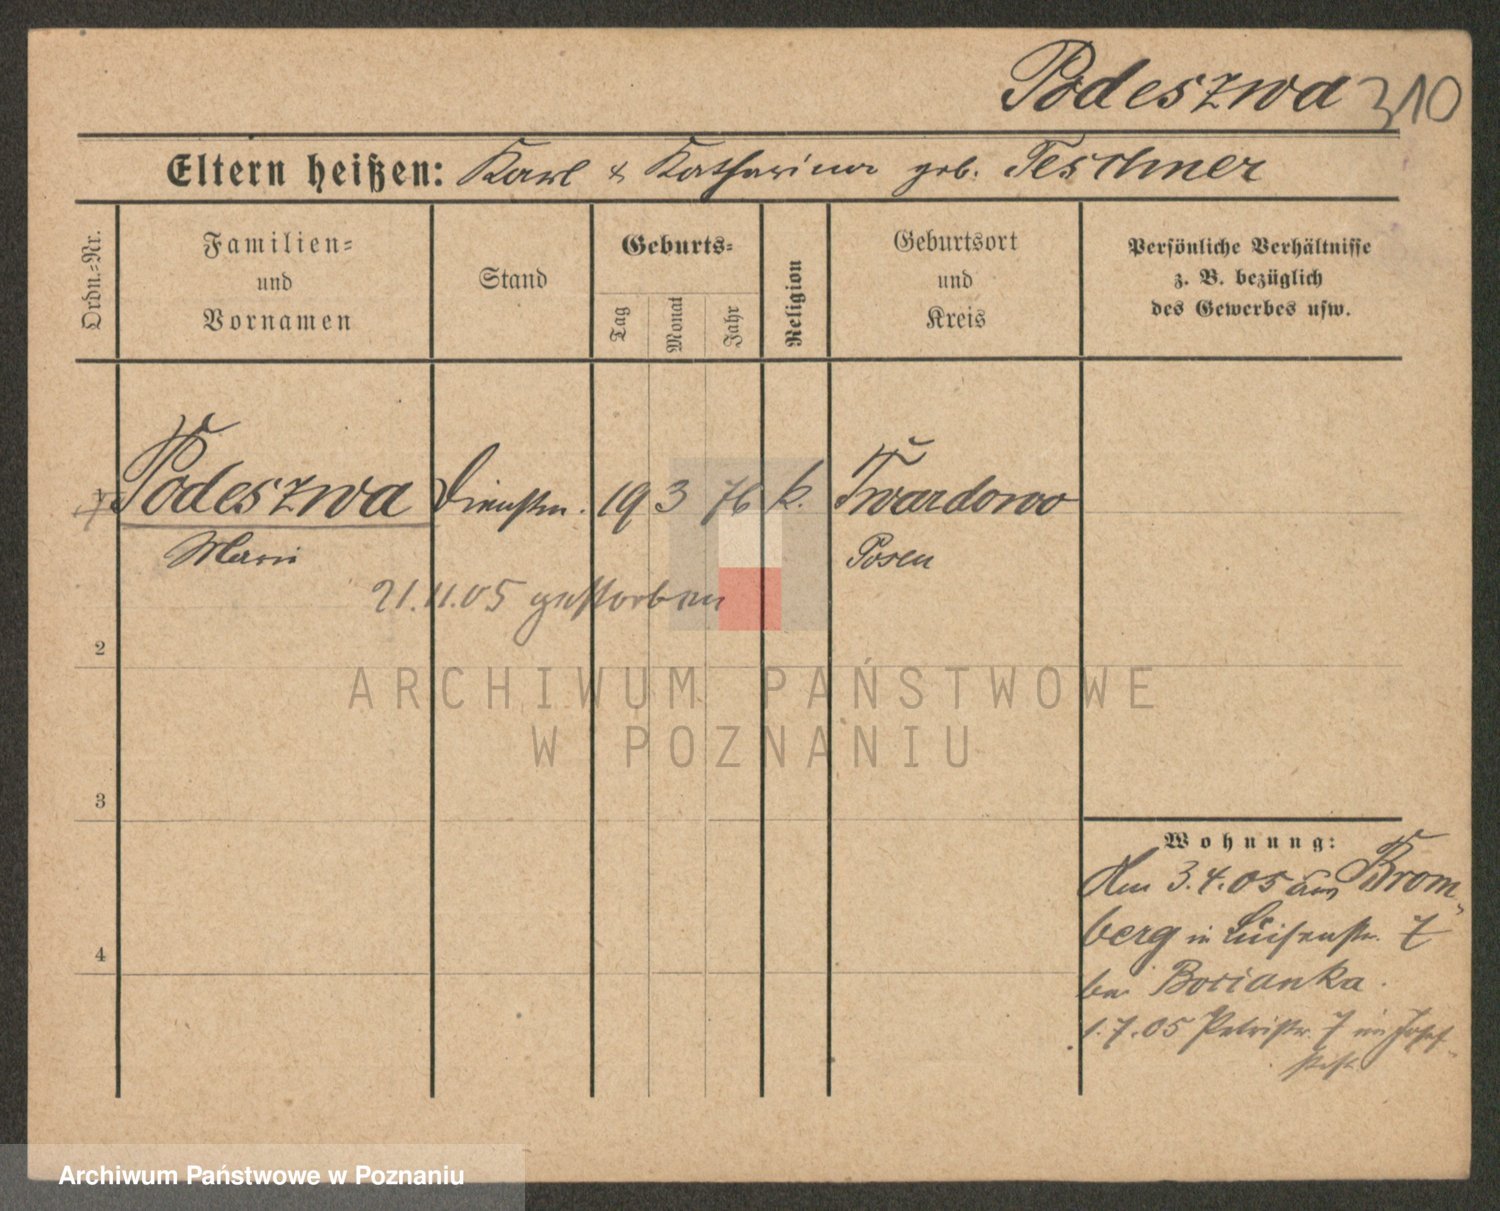 Podeszwa 310
Eltern heißen: Karl & Katharina geb. Teschner
Ordn.-Nr.
Familien-
und
Vornamen
Stand
Geburts-
Tag
Monat
Jahr
Religion
Geburtsort
und
Kreis
Persönliche Verhältnisse
z. B. bezüglich
des Gewerbes usw.
Podeszwa Dienstm. 19 3 76 k. Twardowo
Marie Posen
21.11.05 gestorben
2
3
4
Wohnung:
Am 3.4.05 aus Brom-
berg in Luisenstr. 7
bei Bocianka.
1.7.05 Petristr. 7 im Josef-
stift
ARCHIWUM PAŃSTWOWE
W POZNANIU
Archiwum Państwowe w Poznaniu